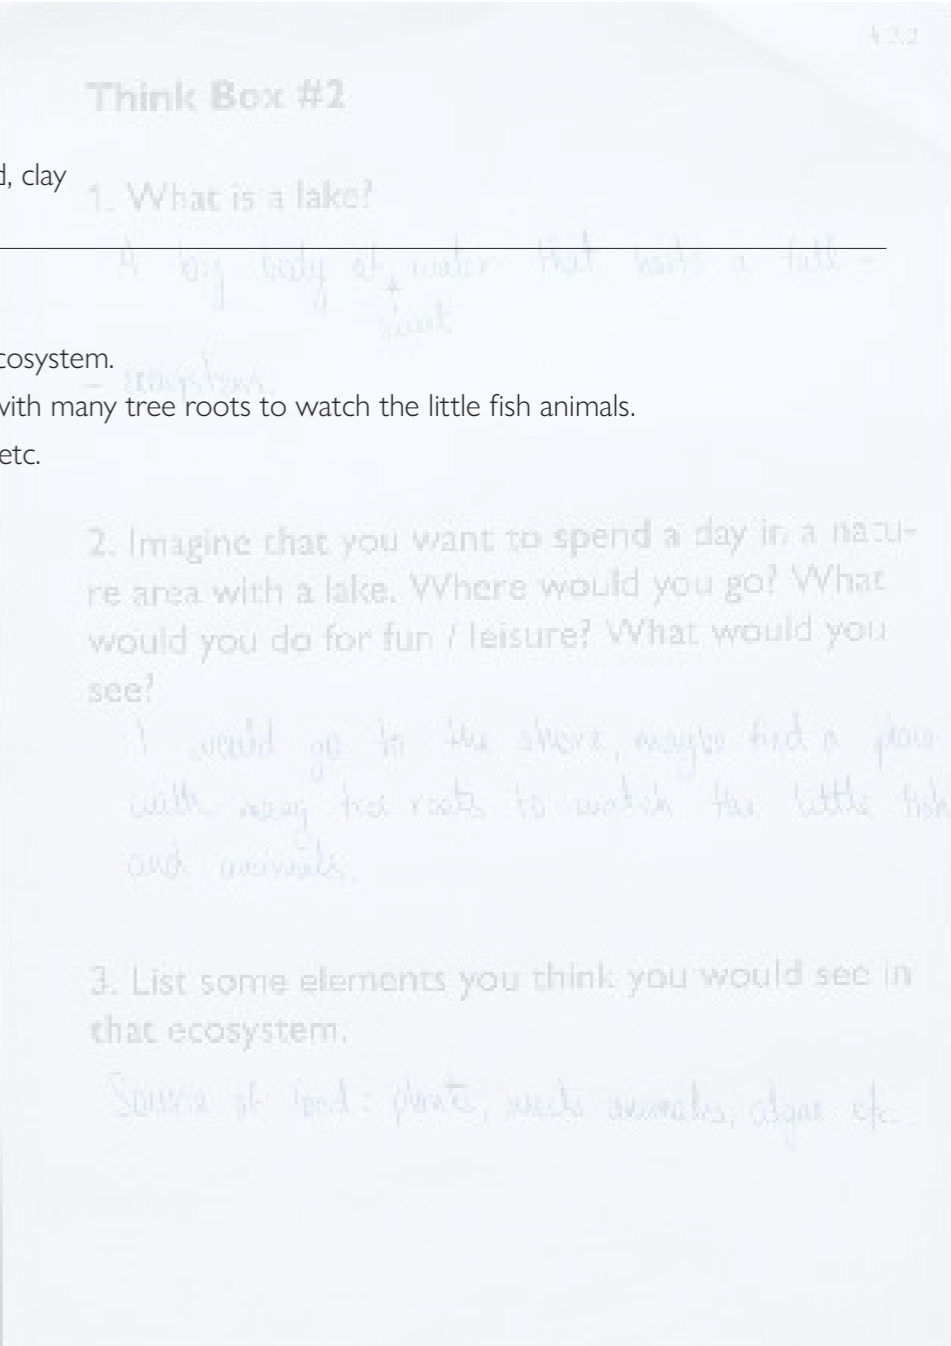 4.2.2
Think Box #2
d, clay
1. What is a lake?
A big body of water that hosts a full -
sweet
cosystem.
- ecosystem.
with many tree roots to watch the little fish animals.
etc.
2. Imagine that you want to spend a day in a natu-
re area with a lake. Where would you go? What
would you do for fun / leisure? What would you
see?
I would go to the shore, maybe find a place
with many tree roots to watch the little fish
and animals.
3. List some elements you think you would see in
that ecosystem.
Source of food: plants, insects animales, algae etc.